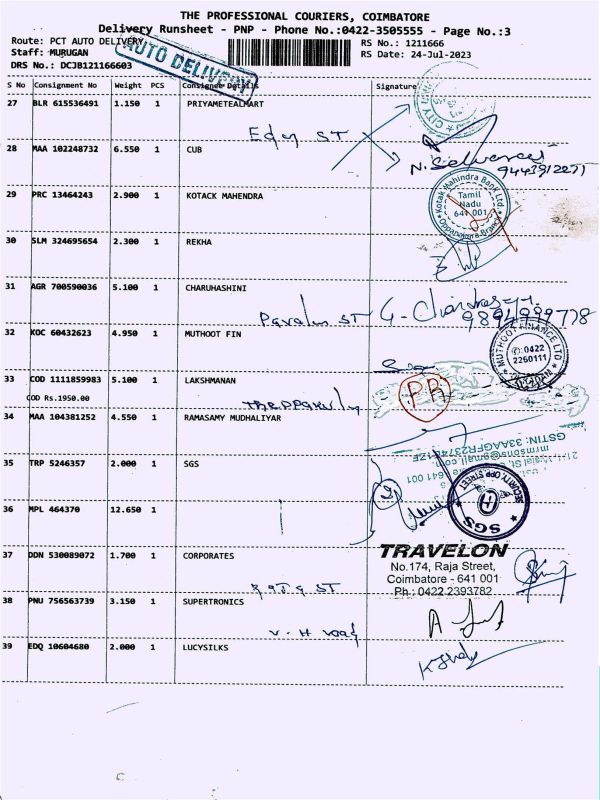 THE PROFESSIONAL COURIERS, COIMBATORE
Delivery Runsheet - PNP - Phone No.:0422-3505555 - Page No.:3
Route: PCT AUTO DELIVERY
RS No.: 1211666
Staff: MURUGAN
RS Date: 24-Jul-2023
DRS No.: DCJB121166603
AUTO DELIVERY
S No Consignment No Weight PCS Consignee Details Signature
27 BLR 615536491 1.150 1 PRIYAMETEALMART
28 MAA 102248732 6.550 1 CUB
9443912271
29 PRC 13464243 2.900 1 KOTACK MAHENDRA
Kotak Mahindra Bank Ltd.
Tamil
Nadu
641 001
30 SLM 324695654 2.300 1 REKHA
31 AGR 700590036 5.100 1 CHARUHASHINI
9894989778
32 KOC 60432623 4.950 1 MUTHOOT FIN
MUTHOOT FINANCE LTD
0422
2260111
33 COD 1111859983 5.100 1 LAKSHMANAN
COD Rs.1950.00
PR
34 MAA 104381252 4.550 1 RAMASAMY MUDHALIYAR
35 TRP 5246357 2.000 1 SGS
SGS
36 MPL 464370 12.650 1
37 DDN 530089072 1.700 1 CORPORATES
TRAVELON
No.174, Raja Street,
Coimbatore - 641 001
Ph : 0422 2393782
38 PNU 756563739 3.150 1 SUPERTRONICS
39 EDQ 10604680 2.000 1 LUCYSILKS